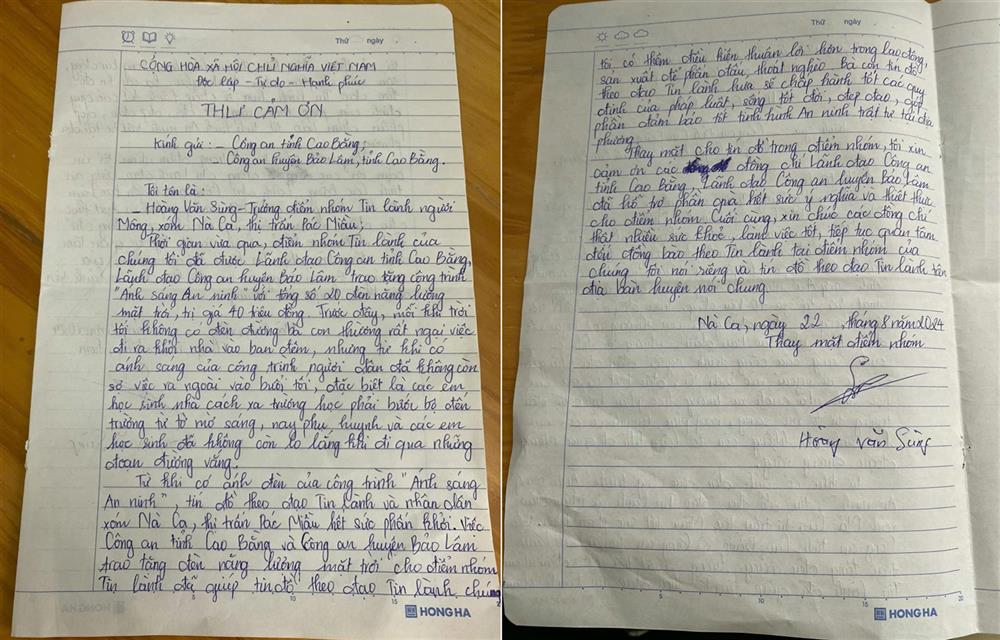 Thứ ngày
CỘNG HÒA XÃ HỘI CHỦ NGHĨA VIỆT NAM
Độc lập - Tự do - Hạnh phúc
THƯ CẢM ƠN
Kính gửi: - Công an tỉnh Cao Bằng;
Công an huyện Bảo Lâm, tỉnh Cao Bằng.
Tôi tên là:
- Hoàng Văn Sùng - Trưởng điểm nhóm Tin lành người
Mông, xóm Nà Ca, thị trấn Pác Miầu;
Thời gian vừa qua, điểm nhóm Tin lành của
chúng tôi đã được Lãnh đạo Công an tỉnh Cao Bằng,
Lãnh đạo Công an huyện Bảo Lâm trao tặng công trình
"Ánh sáng An ninh" với tổng số 20 đèn năng lượng
mặt trời, trị giá 40 triệu đồng. Trước đây, mỗi khi trời
tối không có đèn đường bà con thường rất ngại việc
đi ra khỏi nhà vào ban đêm, nhưng từ khi có
ánh sáng của công trình người dân đã không còn
sợ việc ra ngoài vào buổi tối, đặc biệt là các em
học sinh nhà cách xa trường học phải bước bộ đến
trường từ tờ mờ sáng, nay phụ huynh và các em
học sinh đã không còn lo lắng khi đi qua những
đoạn đường vắng.
Từ khi có ánh đèn của công trình "Ánh sáng
An ninh", tín đồ theo đạo Tin lành và nhân dân
xóm Nà Ca, thị trấn Pác Miầu hết sức phấn khởi. Việc
Công an tỉnh Cao Bằng và Công an huyện Bảo Lâm
trao tặng đèn năng lượng mặt trời cho điểm nhóm
Tin lành đã giúp tín đồ theo đạo Tin lành chúng
HONG HA
Thứ ngày
tôi có thêm điều kiện thuận lợi hơn trong lao động,
sản xuất để phấn đấu, thoát nghèo. Bà con tín đồ
theo đạo Tin lành hứa sẽ chấp hành tốt các quy
định của pháp luật, sống tốt đời, đẹp đạo, góp
phần đảm bảo tốt tình hình An ninh trật tự tại địa
phương.
Thay mặt cho tín đồ trong điểm nhóm, tôi xin
cảm ơn các đồng chí Lãnh đạo Công an
tỉnh Cao Bằng, Lãnh đạo Công an huyện Bảo Lâm
đã hỗ trợ phần quà hết sức ý nghĩa và thiết thực
cho điểm nhóm. Cuối cùng, xin chúc các đồng chí
thật nhiều sức khoẻ, làm việc tốt, tiếp tục quan tâm
đến đồng bào theo Tin lành tại điểm nhóm của
chúng tôi nói riêng và tín đồ theo đạo Tin lành trên
địa bàn huyện nói chung
Nà Ca, ngày 22, tháng 8 năm 2024
Thay mặt điểm nhóm
Hoàng Văn Sùng
HONG HA